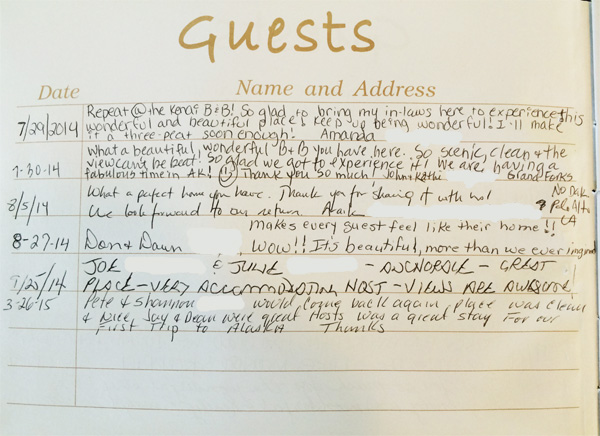 Guests
Date Name and Address
Repeat @ the Kenai B&B! So glad to bring my in-laws here to experience this
7/29/2014 wonderful and beautiful place! Keep up being wonderful! I'll make
it a three-peat soon enough! Amanda
What a beautiful, wonderful B&B you have here. So scenic, clean & the
view can't be beat! So glad we got to experience it! We are having a
7-30-14 fabulous time in AK! Thank you so much, John & Kathi Grand Forks
No Dak
What a perfect home you have. Thank you for sharing it with us!
8/5/14 We look forward to our return. Palo Alto
CA
makes every guest feel like their home!!
8-27-14 Don & Dawn WOW!! It's beautiful, more than we ever imagined
JOE & JUNE - ANCHORAGE - GREAT
9/25/14 PLACE - VERY ACCOMMODATING HOST - VIEWS ARE AWESOME!
3-26-15 Pete & Shannon would come back again, place was clean
& nice, Jay & Dean were great Hosts was a great stay For our
First Trip to Alaska Thanks